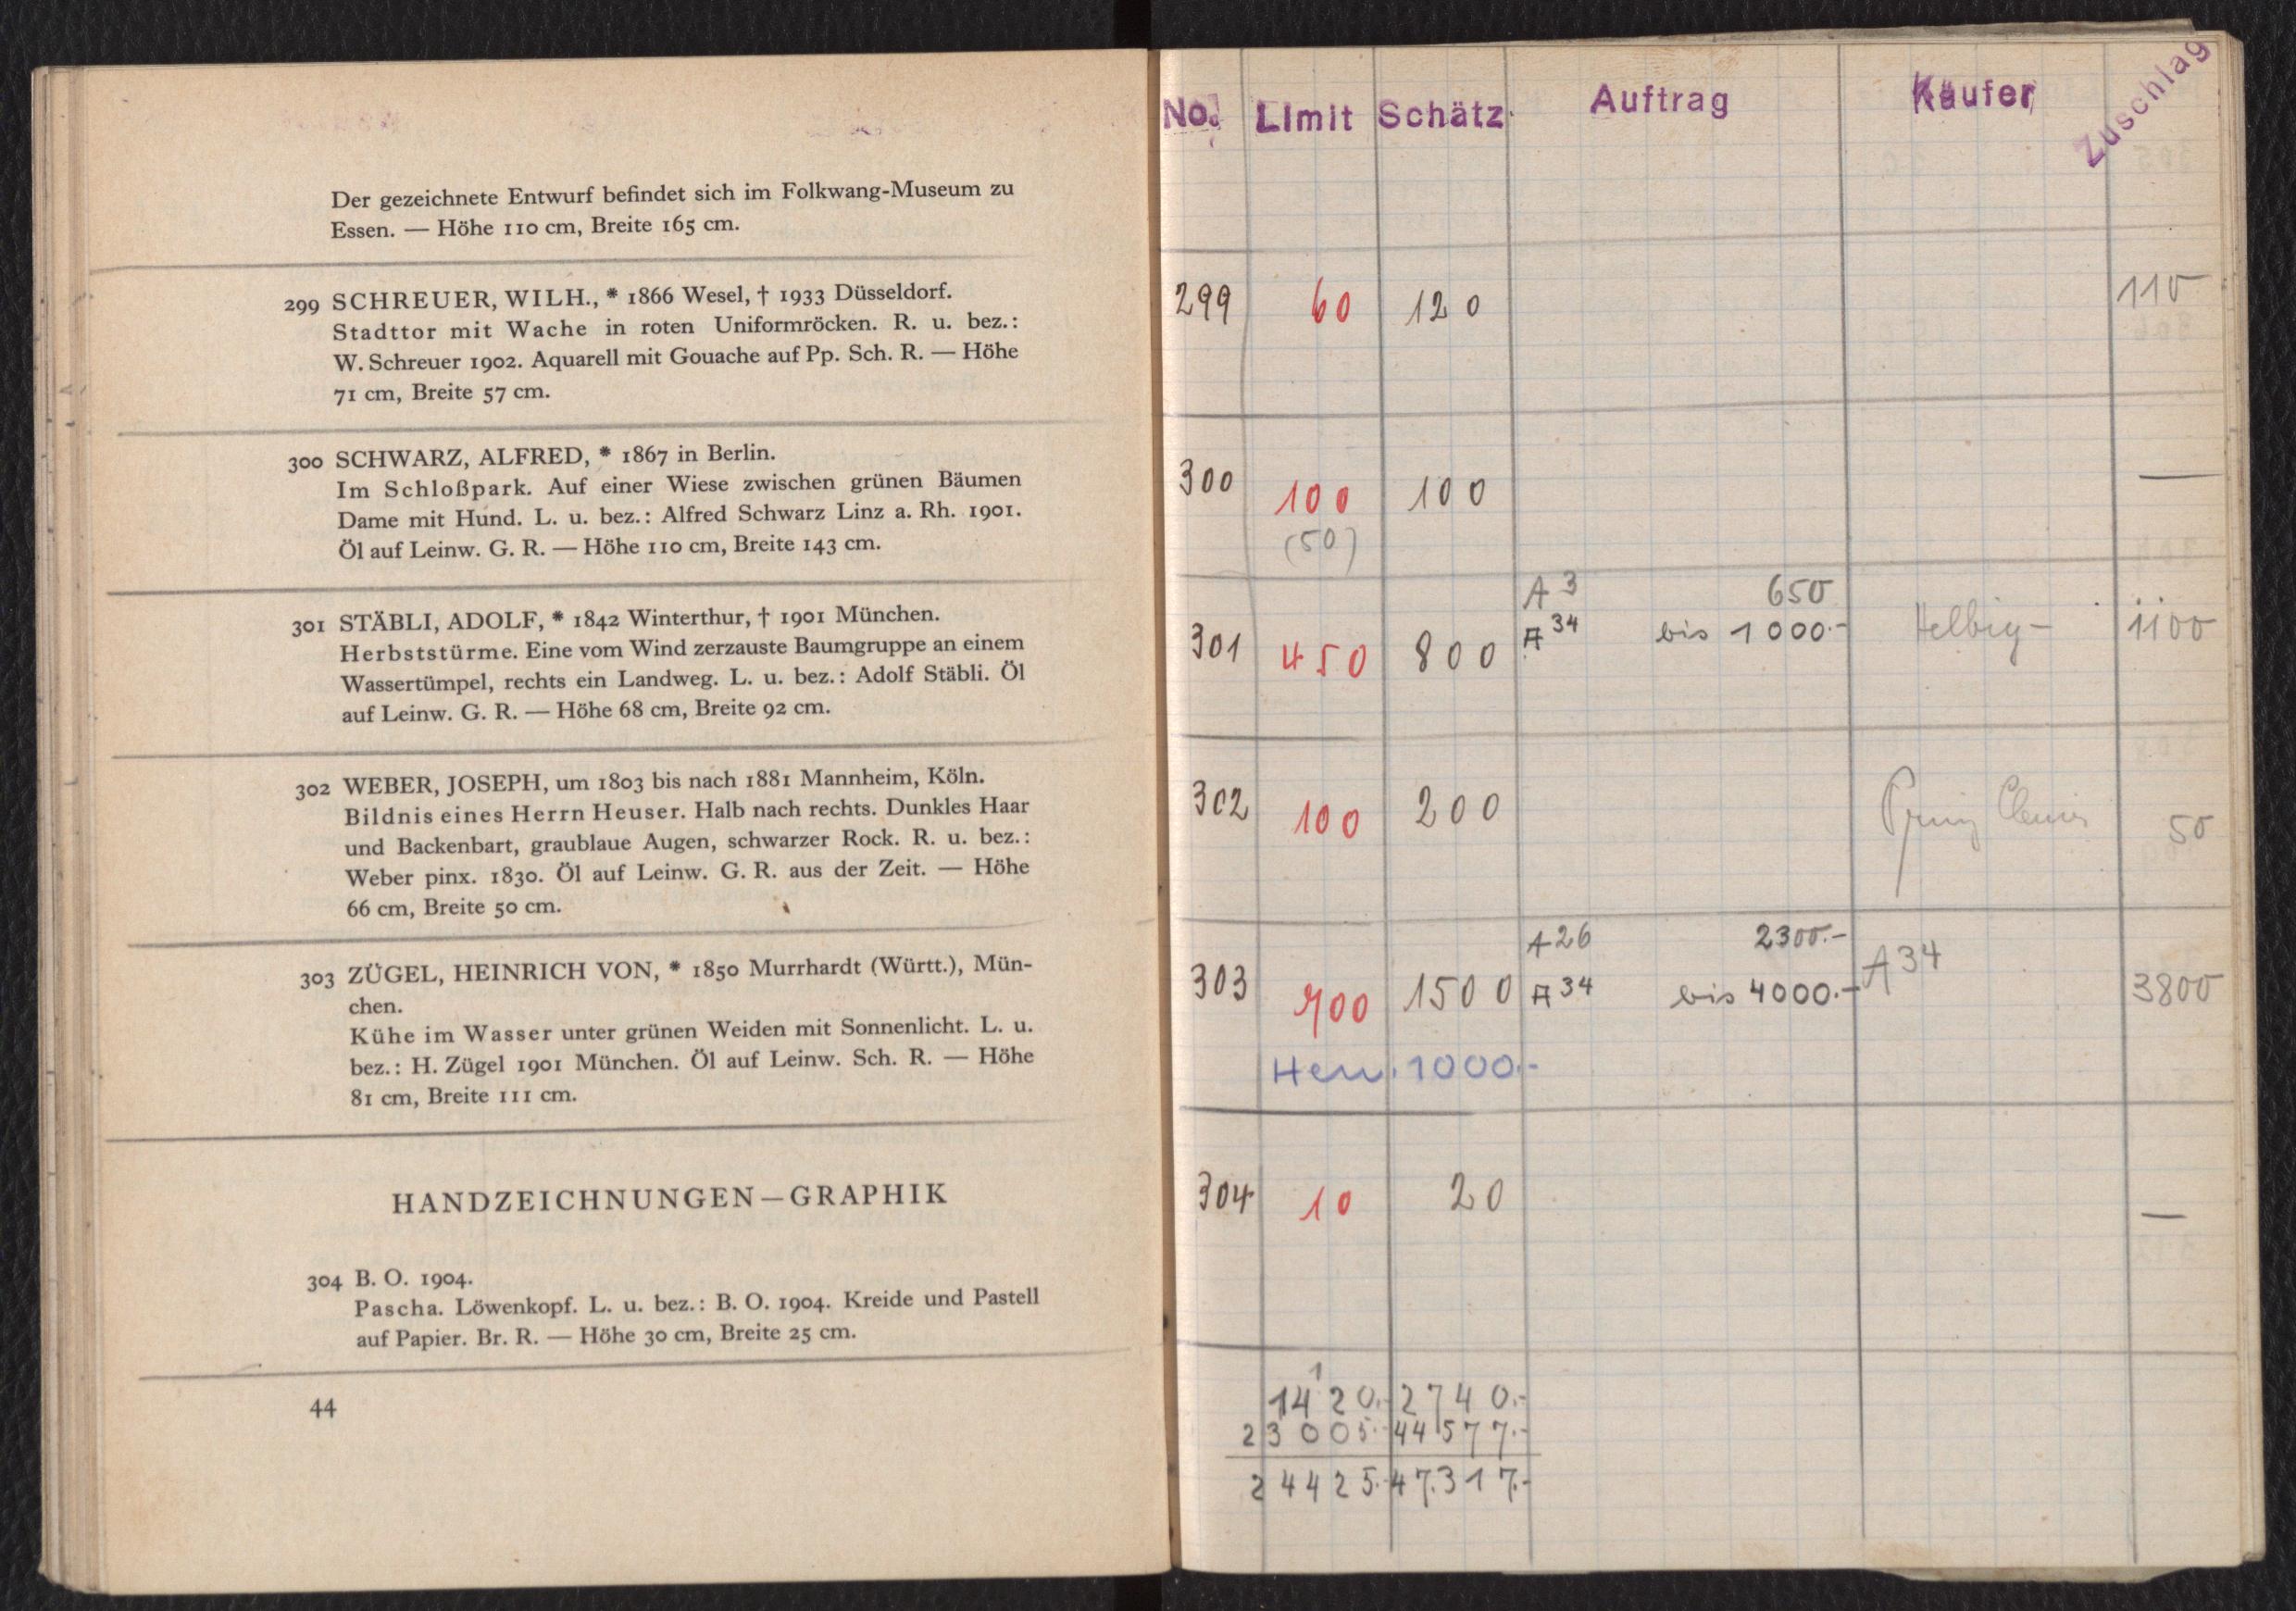 Der gezeichnete Entwurf befindet sich im Folkwang-Museum zu
Essen. — Höhe 110 cm, Breite 165 cm.
299 SCHREUER, WILH., * 1866 Wesel, † 1933 Düsseldorf.
Stadttor mit Wache in roten Uniformröcken. R. u. bez.:
W. Schreuer 1902. Aquarell mit Gouache auf Pp. Sch. R. — Höhe
71 cm, Breite 57 cm.
300 SCHWARZ, ALFRED, * 1867 in Berlin.
Im Schloßpark. Auf einer Wiese zwischen grünen Bäumen
Dame mit Hund. L. u. bez.: Alfred Schwarz Linz a. Rh. 1901.
Öl auf Leinw. G. R. — Höhe 110 cm, Breite 143 cm.
301 STÄBLI, ADOLF, * 1842 Winterthur, † 1901 München.
Herbststürme. Eine vom Wind zerzauste Baumgruppe an einem
Wassertümpel, rechts ein Landweg. L. u. bez.: Adolf Stäbli. Öl
auf Leinw. G. R. — Höhe 68 cm, Breite 92 cm.
302 WEBER, JOSEPH, um 1803 bis nach 1881 Mannheim, Köln.
Bildnis eines Herrn Heuser. Halb nach rechts. Dunkles Haar
und Backenbart, graublaue Augen, schwarzer Rock. R. u. bez.:
Weber pinx. 1830. Öl auf Leinw. G. R. aus der Zeit. — Höhe
66 cm, Breite 50 cm.
303 ZÜGEL, HEINRICH VON, * 1850 Murrhardt (Württ.), Mün-
chen.
Kühe im Wasser unter grünen Weiden mit Sonnenlicht. L. u.
bez.: H. Zügel 1901 München. Öl auf Leinw. Sch. R. — Höhe
81 cm, Breite 111 cm.
HANDZEICHNUNGEN — GRAPHIK
304 B. O. 1904.
Pascha. Löwenkopf. L. u. bez.: B. O. 1904. Kreide und Pastell
auf Papier. Br. R. — Höhe 30 cm, Breite 25 cm.
44
No. Limit Schätz. Auftrag Käufer Zuschlag
299 60 120 110
300 100 100 —
(50)
A 3 650
301 450 800 A 34 bis 1000.- Helbig — 1100
302 100 200 Prinz 50
A 26 2300.-
303 700 1500 A 34 bis 4000.- A 34 3800
1000.-
304 10 20 —
1
1420.- 2740.-
23005.- 44577.-
24425.- 47.317.-